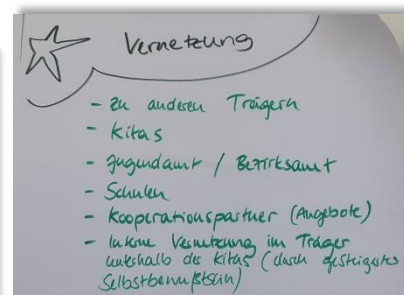 Vernetzung
- zu anderen Trägern
- Kitas
- Jugendamt / Bezirksamt
- Schulen
- Kooperationspartner (Angebote)
- Interne Vernetzung im Träger
unterhalb der Kitas (durch gesteigertes
Selbstbewußtsein)